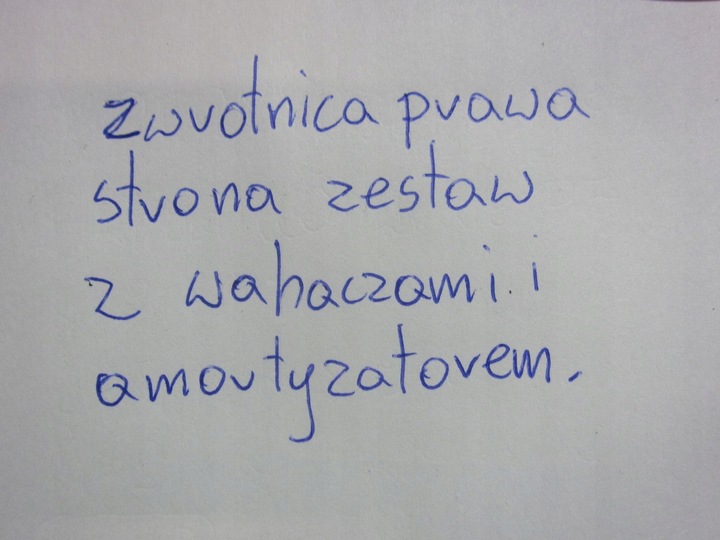 zwrotnica prawa
strona zestaw
z wahaczami i
amortyzatorem.